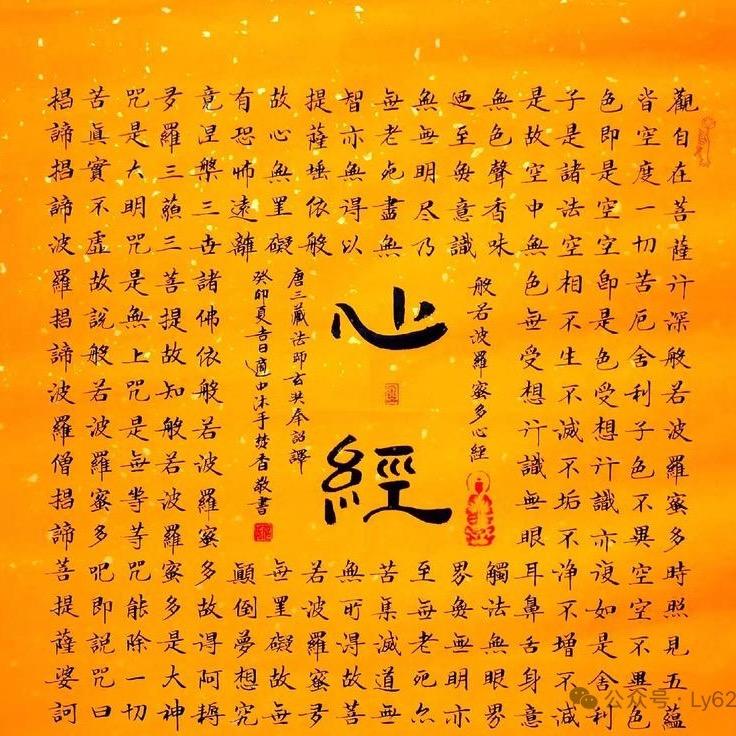 觀自在菩薩行深般若波羅蜜多時照見五蘊
皆空度一切苦厄舍利子色不異空空不異色
色即是空空即是色受想行識亦復如是舍利
子是諸法空相不生不滅不垢不淨不增不減
是故空中無色無受想行識無眼耳鼻舌身意
無色聲香味
觸法無眼界
迺至毎意識
界毎無明亦
無無明尽乃
至無老死亦
無老死盡無
苦集滅道無
智亦無得以
無所得故菩
提薩埵依般
若波羅蜜多
故心無罣礙
無罣礙故無
有恐怖遠離
顛倒夢想究
竟涅槃三世諸佛依般若波羅蜜多故得阿耨
多羅三藐三菩提故知般若波羅蜜多是大神
咒是大明咒是無上咒是無等等咒能除一切
苦真實不虛故說般若波羅蜜多呪即說咒曰
揭諦揭諦波羅揭諦波羅僧揭諦菩提薩婆訶
般若波羅蜜多心經
心經
唐三藏法師玄奘奉詔譯
癸卯夏吉日適中沐手焚香敬書
公众号 · Ly62